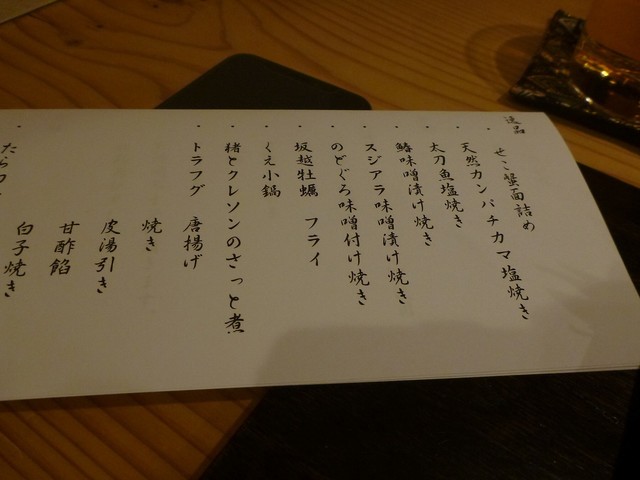 逸品
・せこ蟹面詰め
・天然カンパチカマ塩焼き
・太刀魚塩焼き
・鰆味噌漬け焼き
・スジアラ味噌漬け焼き
・のどぐろ味噌付け焼き
・坂越牡蠣 フライ
・くえ小鍋
・猪とクレソンのさっと煮
・トラフグ 唐揚げ
焼き
皮湯引き
甘酢餡
白子焼き